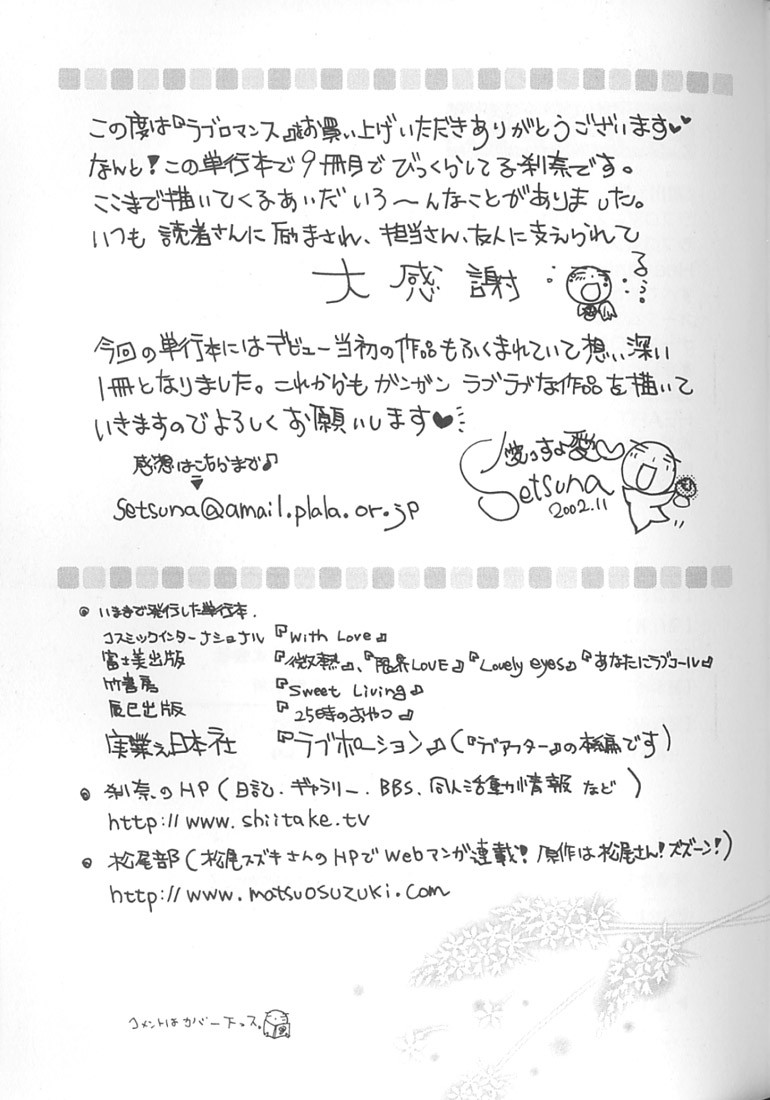 この度は『ラブロマンス』をお買い上げいただきありがとうございます♥♥
なんと!この単行本で9冊目でびっくらしてる刹奈です。
ここまで描いてくるあいだいろ〜んなことがありました。
いつも 読者さんに励まされ、担当さん、友人に支えられて
大感謝
今回の単行本にはデビュー当初の作品もふくまれていて想い深い
1冊となりました。これからもガンガン ラブラブな作品を描いて
いきますのでよろしくお願いします♥
感想はこちらまで♪
▼
setsuna@amail.plala.or.jp
愛っすよ愛〜
Setsuna
2002.11
◎ いままで発行した単行本.
コスミックインターナショナル 『With Love』
富士美出版 『微熱』、『限界LOVE』『Lovely eyes』『あなたにラブコール』
竹書房 『Sweet Living』
辰巳出版 『25時のおやつ』
実業之日本社 『ラブポーション』(『ラブアフター』の本編です)
◎ 刹奈のHP(日記.ギャラリー.BBS、同人活動情報 など)
http://www.shiitake.tv
◎ 松尾部(松尾スズキさんのHPでWebマンガ連載!原作は松尾さん!ズズーン!)
http://www.matsuosuzuki.com
コメントはカバー下っス。